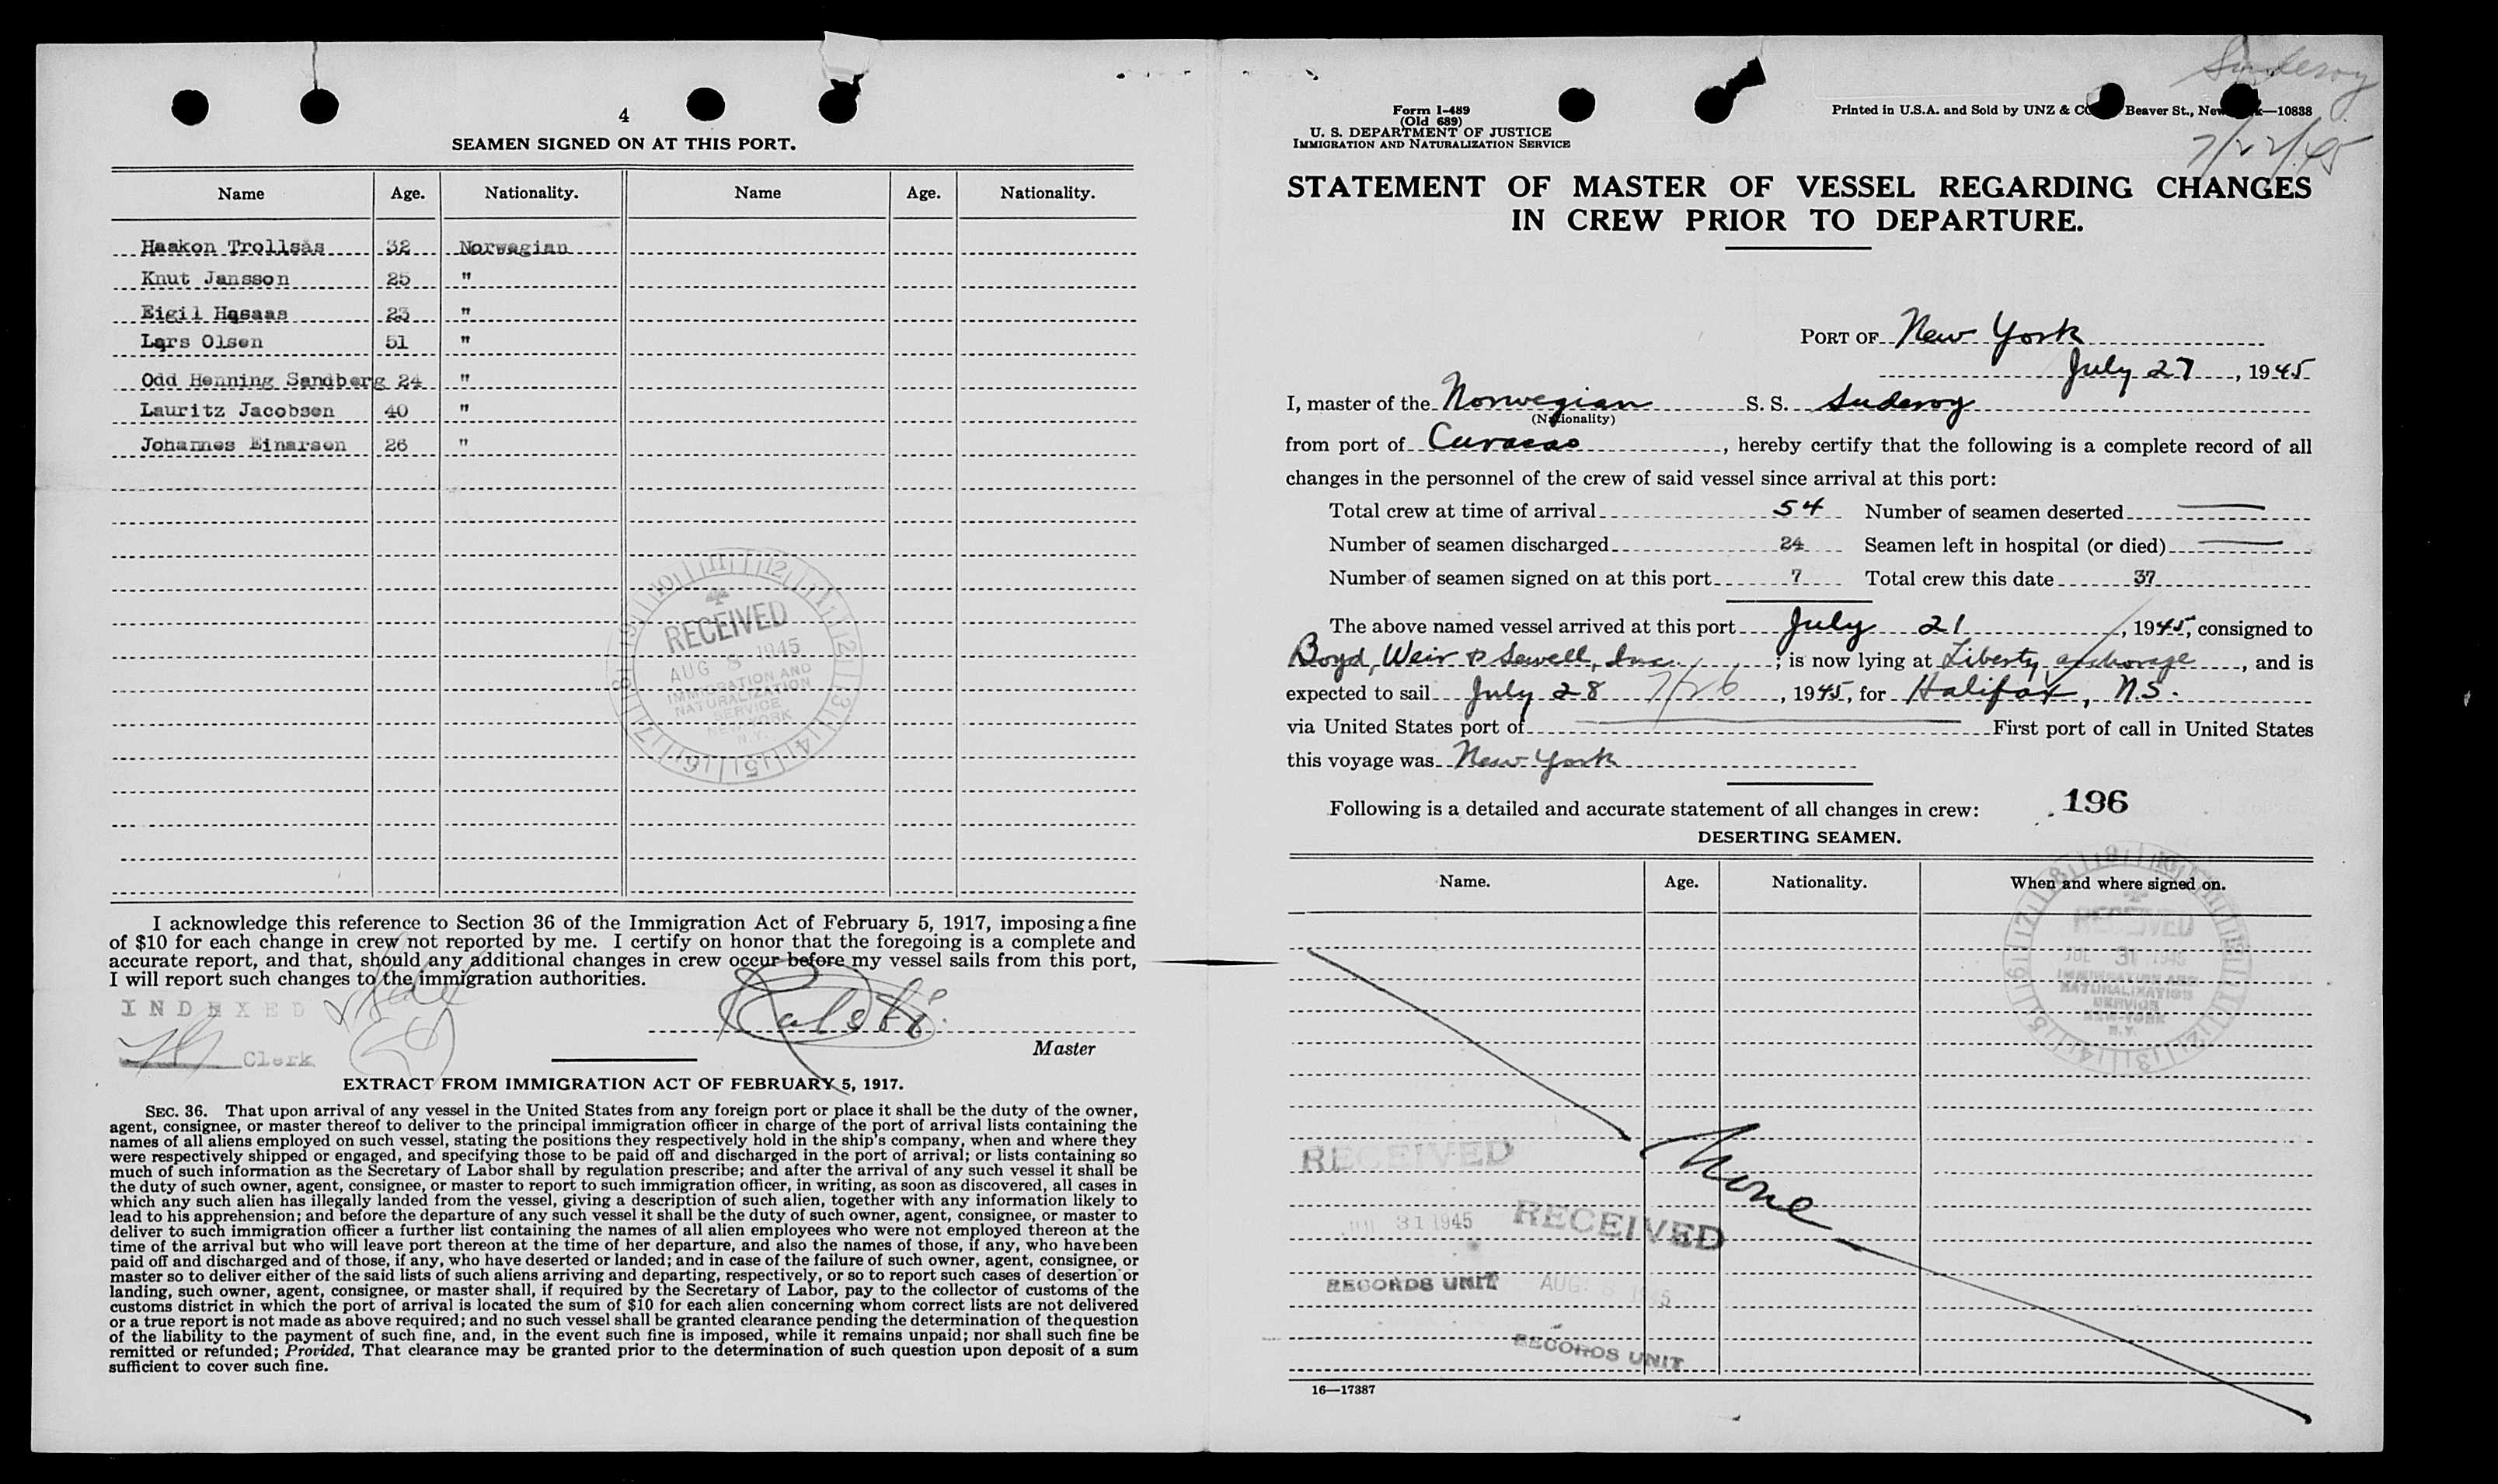 4
SEAMEN SIGNED ON AT THIS PORT.
Name Age. Nationality. Name Age. Nationality.
Haakon Trollsås 32 Norwegian
Knut Jansson 25 "
Eigil Hasaas 23 "
Lars Olsen 51 "
Odd Henning Sandberg 24 "
Lauritz Jacobsen 40 "
Johannes Einarsen 26 "
RECEIVED
AUG 8 1945
IMMIGRATION AND
NATURALIZATION
SERVICE
NEW YORK
N.Y.
I acknowledge this reference to Section 36 of the Immigration Act of February 5, 1917, imposing a fine
of $10 for each change in crew not reported by me. I certify on honor that the foregoing is a complete and
accurate report, and that, should any additional changes in crew occur before my vessel sails from this port,
I will report such changes to the immigration authorities.
INDEXED
Clerk
Master
EXTRACT FROM IMMIGRATION ACT OF FEBRUARY 5, 1917.
SEC. 36. That upon arrival of any vessel in the United States from any foreign port or place it shall be the duty of the owner,
agent, consignee, or master thereof to deliver to the principal immigration officer in charge of the port of arrival lists containing the
names of all aliens employed on such vessel, stating the positions they respectively hold in the ship's company, when and where they
were respectively shipped or engaged, and specifying those to be paid off and discharged in the port of arrival; or lists containing so
much of such information as the Secretary of Labor shall by regulation prescribe; and after the arrival of any such vessel it shall be
the duty of such owner, agent, consignee, or master to report to such immigration officer, in writing, as soon as discovered, all cases in
which any such alien has illegally landed from the vessel, giving a description of such alien, together with any information likely to
lead to his apprehension; and before the departure of any such vessel it shall be the duty of such owner, agent, consignee, or master to
deliver to such immigration officer a further list containing the names of all alien employees who were not employed thereon at the
time of the arrival but who will leave port thereon at the time of her departure, and also the names of those, if any, who have been
paid off and discharged and of those, if any, who have deserted or landed; and in case of the failure of such owner, agent, consignee, or
master so to deliver either of the said lists of such aliens arriving and departing, respectively, or so to report such cases of desertion or
landing, such owner, agent, consignee, or master shall, if required by the Secretary of Labor, pay to the collector of customs of the
customs district in which the port of arrival is located the sum of $10 for each alien concerning whom correct lists are not delivered
or a true report is not made as above required; and no such vessel shall be granted clearance pending the determination of the question
of the liability to the payment of such fine, and, in the event such fine is imposed, while it remains unpaid; nor shall such fine be
remitted or refunded; Provided, That clearance may be granted prior to the determination of such question upon deposit of a sum
sufficient to cover such fine.
Suderoy
7/22/45
Form I-489
(Old 689)
U. S. DEPARTMENT OF JUSTICE
IMMIGRATION AND NATURALIZATION SERVICE
Printed in U.S.A. and Sold by UNZ & CO Beaver St., New —10838
STATEMENT OF MASTER OF VESSEL REGARDING CHANGES
IN CREW PRIOR TO DEPARTURE.
PORT OF New York
July 27, 1945
I, master of the Norwegian S. S. Suderoy
(Nationality)
from port of Curacao, hereby certify that the following is a complete record of all
changes in the personnel of the crew of said vessel since arrival at this port:
Total crew at time of arrival 54 Number of seamen deserted —
Number of seamen discharged 24 Seamen left in hospital (or died) —
Number of seamen signed on at this port 7 Total crew this date 37
The above named vessel arrived at this port July 21, 1945, consigned to
Boyd, Weir & Sewell, Inc.; is now lying at Liberty anchorage, and is
expected to sail July 28 7/26, 1945, for Halifax, N.S.
via United States port of — First port of call in United States
this voyage was New York
Following is a detailed and accurate statement of all changes in crew: 196
DESERTING SEAMEN.
Name. Age. Nationality. When and where signed on.
RECEIVED
JUL 31 1945
IMMIGRATION AND
NATURALIZATION
SERVICE
NEW YORK
N.Y.
None
RECEIVED
JUL 31 1945
RECORDS UNIT
RECEIVED
AUG 8 1945
RECORDS UNIT
16—17387